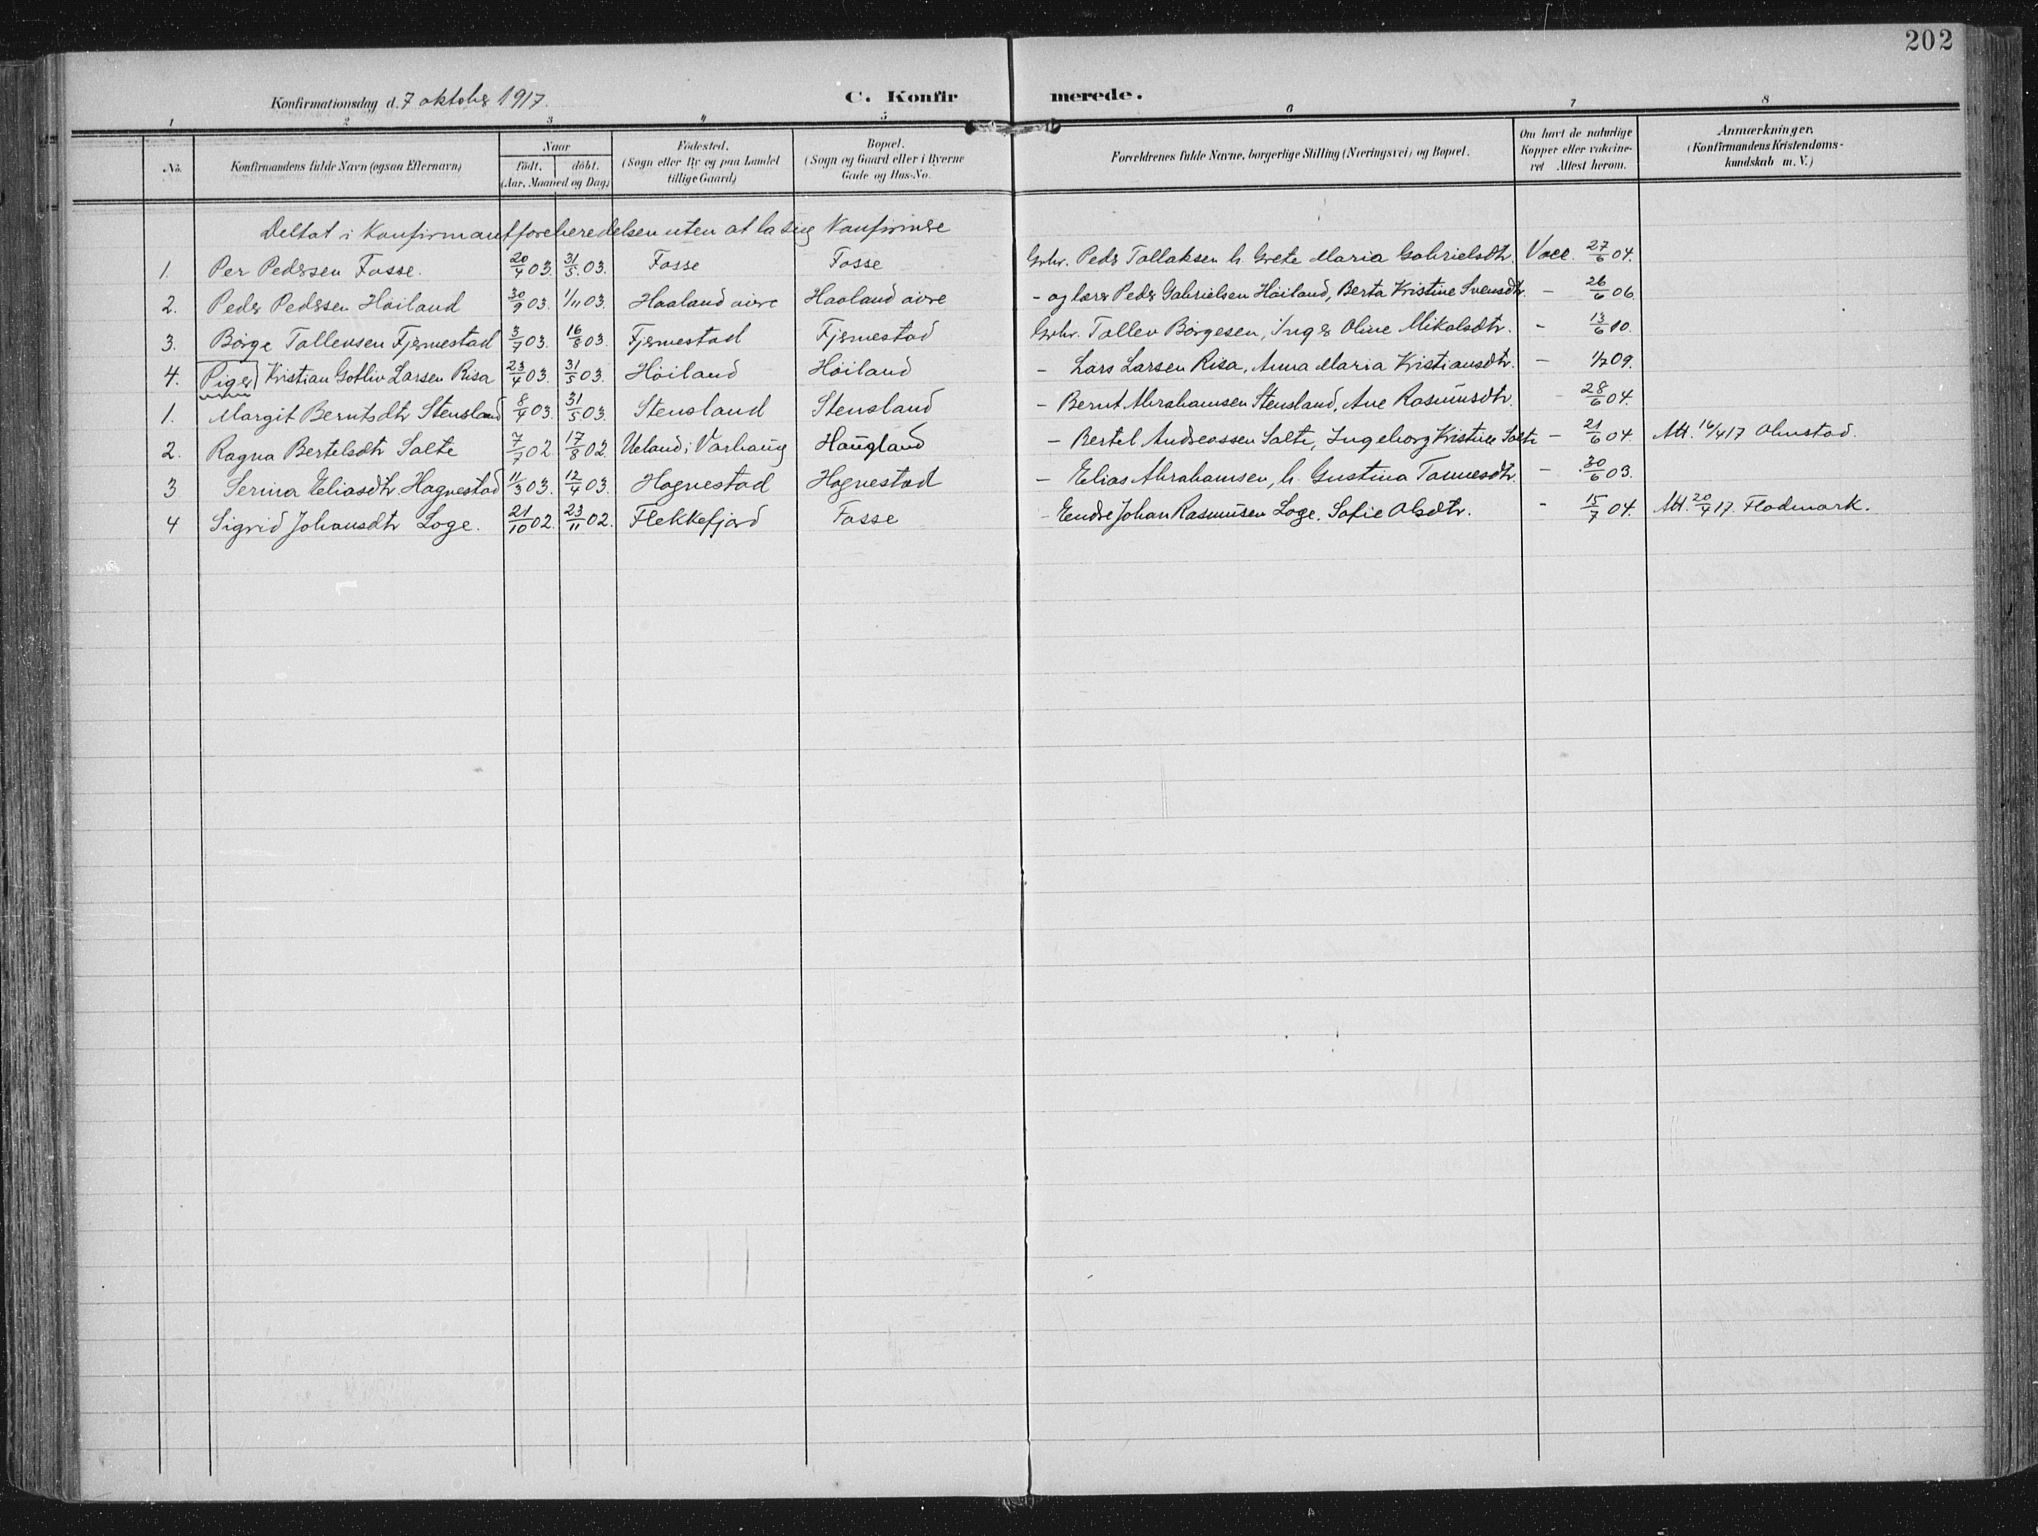 202
Konfirmationsdag d. 7 oktober 1917.
C. Konfirmerede.
1 2 3 4 5 6 7 8
No. | Konfirmandens fulde Navn (ogsaa Efternavn) | Naar født. døbt. (Aar, Maaned og Dag) | Fødested. (Sogn eller By og paa Landet tillige Gaard) | Bopæl. (Sogn og Gaard eller i Byerne Gade og Hus-No. | Forældrenes fulde Navne, borgerlige Stilling (Næringsvei) og Bopæl. | Om havt de naturlige Kopper eller vakcineret Attest herom. | Anmærkninger. (Konfirmandens Kristendomskundskab m. V.)
Deltat i Konfirmantforberedelsen uten at la sig Konfirmere
1. Per Pedersen Fosse. 20/4 03. 31/5 03. Fosse Fosse Grbr. Peder Tollaksen h. Grete Maria Gabrielsdtr. Vacc. 27/6 04.
2. Peder Pedersen Høiland 30/9 03. 1/11 03. Haaland øvre Haaland øvre - og lærer Peder Gabrielsen Høiland, Berta Kristine Svensdtr. - 26/6 06.
3. Børge Tollevsen Fjermestad 3/7 03. 16/8 03. Fjermestad Fjermestad Grbr. Tollev Børgesen, Inger Oline Mikalsdtr. - 13/6 10.
4. Kristian Gotliv Larsen Risa 23/4 03. 31/5 03. Høiland Høiland - Lars Larsen Risa, Anna Maria Kristiansdtr. - 1/7 09.
Piger
1. Margit Berntsdtr Stensland 8/4 03. 31/5 03. Stensland Stensland - Bernt Abrahamsen Stensland, Ane Rasmusdtr. - 28/6 04.
2. Ragna Bertelsdtr Salte 7/7 02 17/8 02. Ueland i Varhaug Haugland - Bertel Andreassen Salte, Ingeborg Kristine Salte - 21/6 04. Att. 16/4 17 Olmstad.
3 Serina Eliasdtr Hognestad 11/3 03. 12/4 03. Hognestad Hognestad - Elias Abrahamsen, h. Gustina Tønnesdtr. - 30/6 03.
4 Sigrid Johansdtr Loge. 21/10 02. 23/11 02. Flekkefjord Fosse - Endre Johan Rasmusen Loge. Sofie Olsdtr. - 15/7 04. Att. 20/4 17. Flodmark.